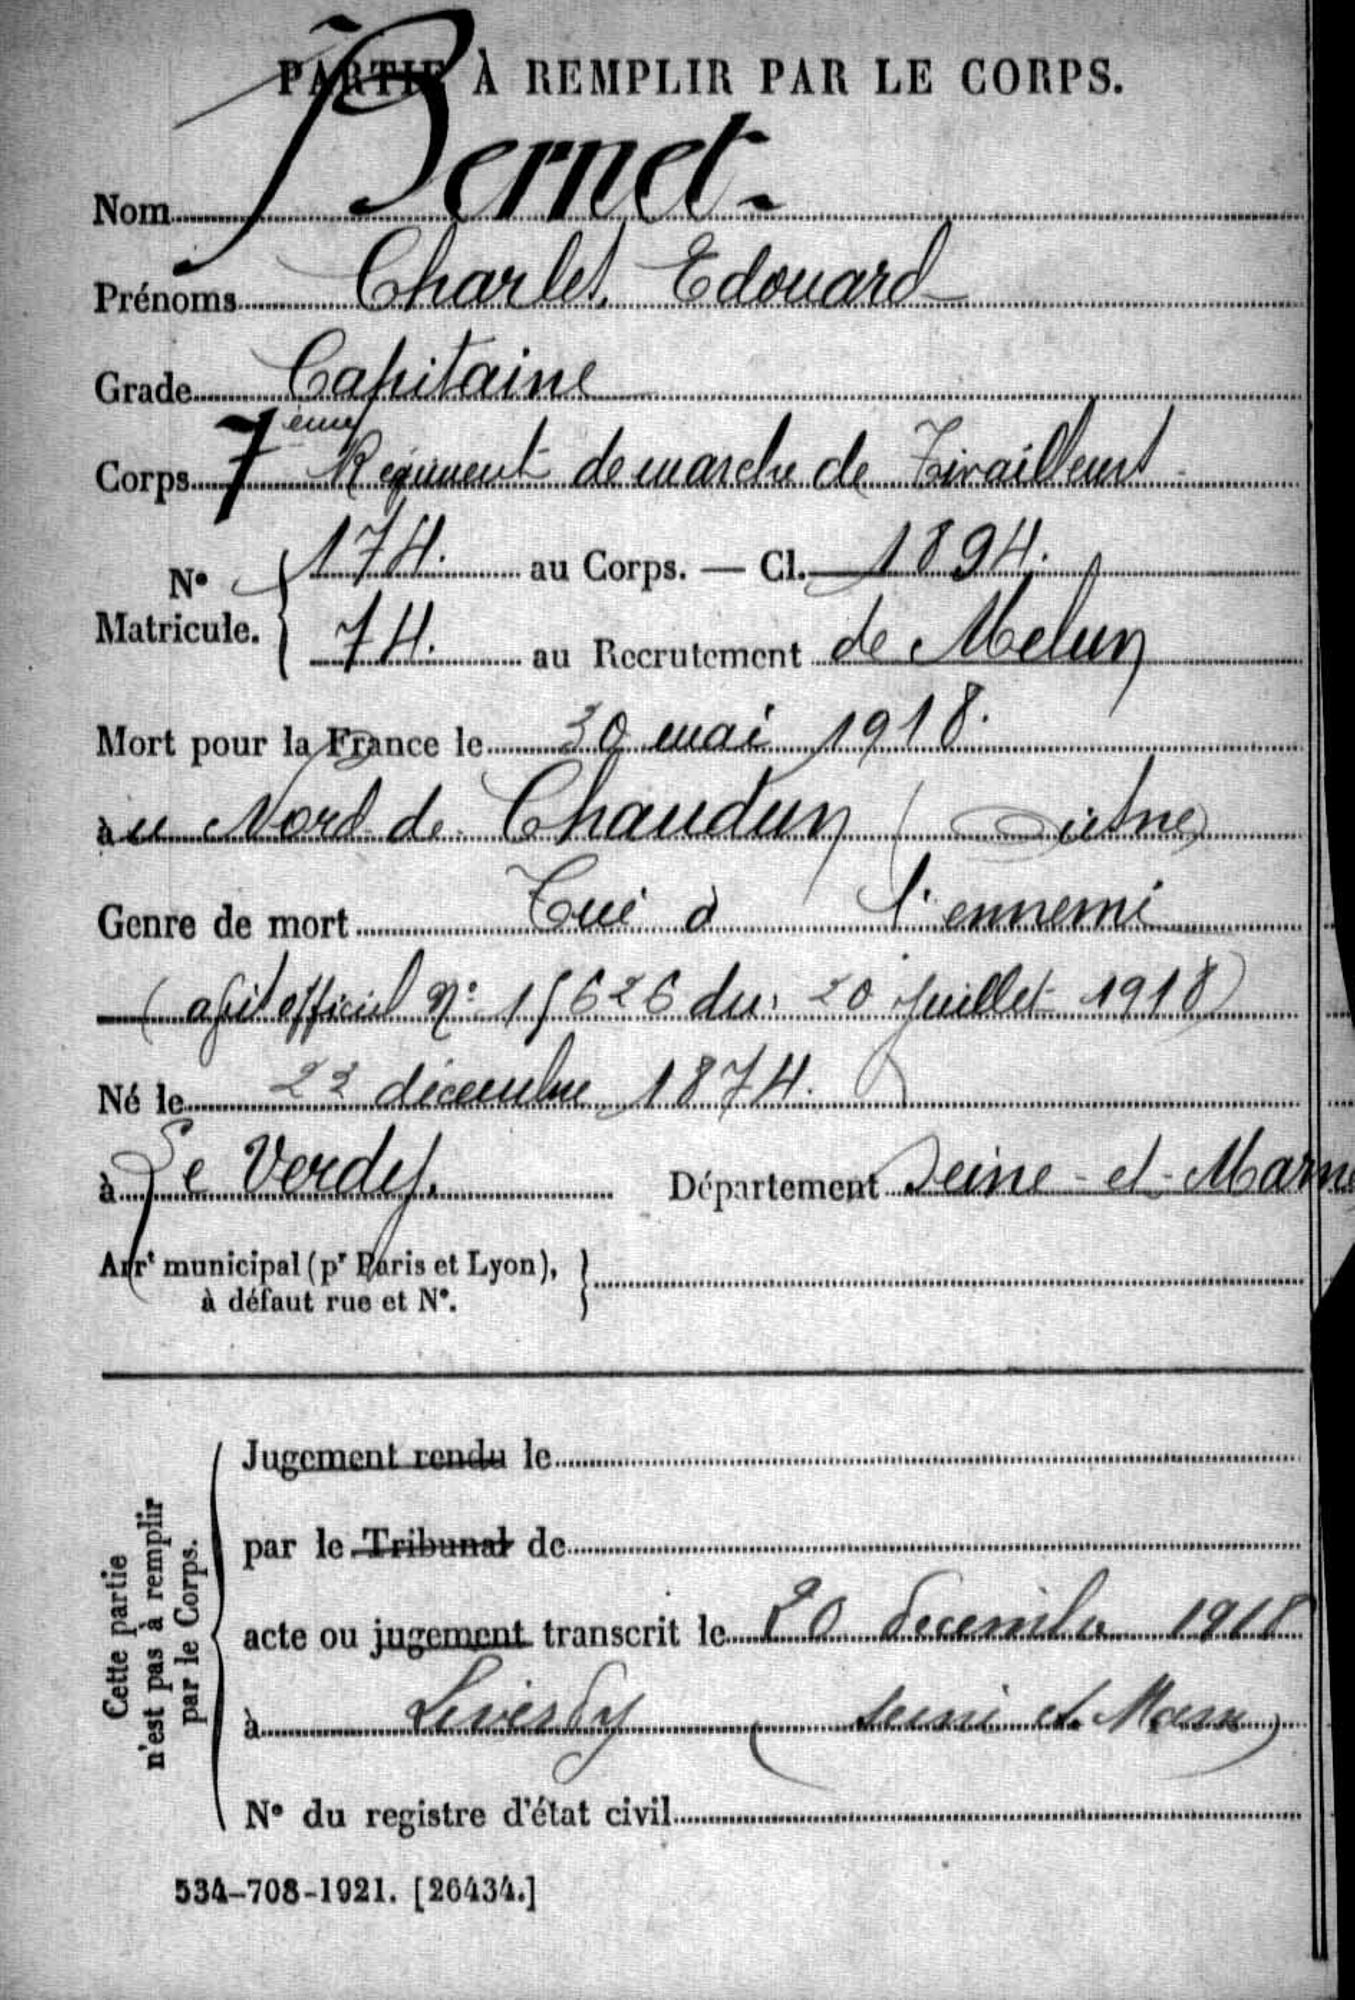 PARTIE À REMPLIR PAR LE CORPS.
Nom Bernet
Prénoms Charles Edouard
Grade Capitaine
Corps 7ème Régiment de marche de Tirailleurs
No Matricule. { 174. au Corps. — Cl. 1894.
74. au Recrutement de Melun
Mort pour la France le 30 mai 1918.
au Nord de Chaudun (Aisne)
Genre de mort Tué à l'ennemi
( officiel No 15626 du 20 juillet 1918)
Né le décembre 1874.
à Le Verdy. Département Seine-et-Marne
Arrt municipal (pr Paris et Lyon), }
à défaut rue et No.
Cette partie
n'est pas à remplir
par le Corps.
Jugement rendu le
par le Tribunal de
acte ou jugement transcrit le 20 decembre 1918
à Liverdy (Seine et Marne)
No du registre d'état civil
534-708-1921. [26434.]